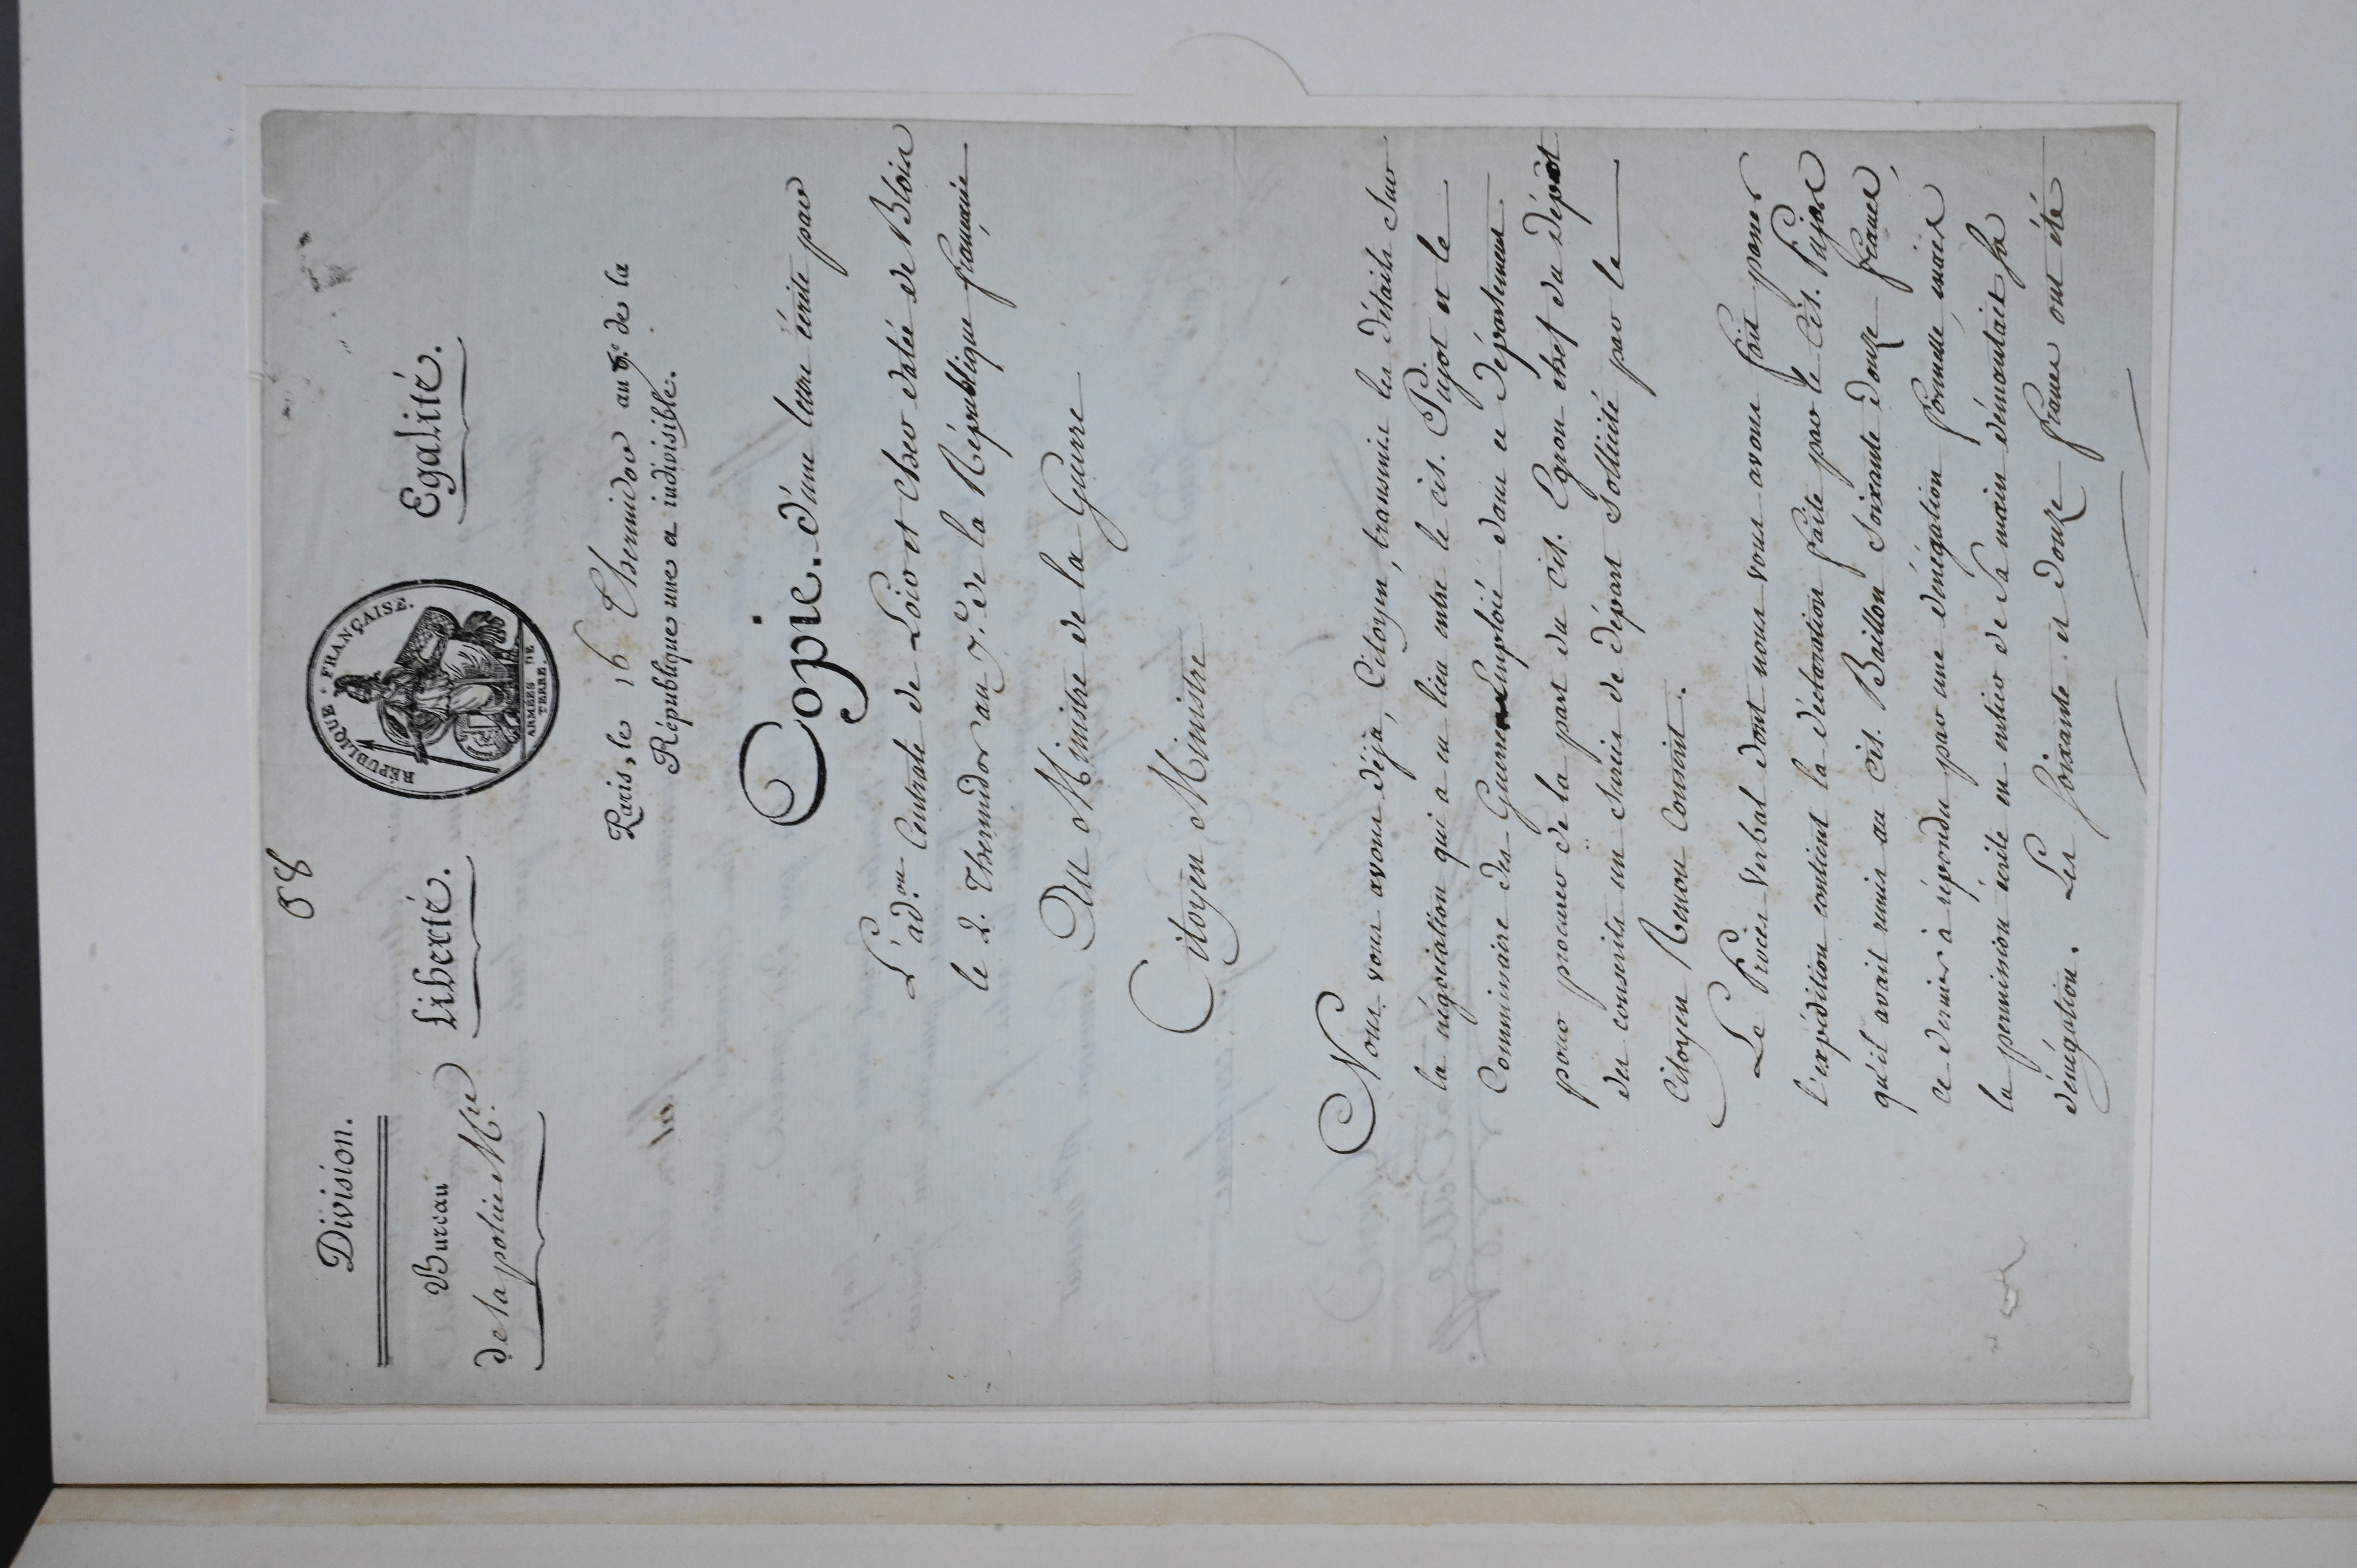 88
Division.
Bureau
de la police Mre
Liberté.
RÉPUBLIQUE FRANÇAISE.
ARMÉES DE
TERRE.
Egalité.
Paris, le 16 Thermidor an 7.e de la
République une et indivisible.
Copie. d'une lettre écrite par
L'ad.on Centrale de Loir et Cher datée de Blois
le 2. Thermidor an 7.e de la République française
Au Ministre de la Guerre
Citoyen Ministre
Nous vous avons déja, Citoyen, transmis les détails sur
la négociation qui a eu lieu entre le cit. Pujot et le
Commissaire des Guerres Emploïé dans ce département
pour procurer de la part du cit. Egron chef du dépôt
des conscrits un sursis de départ sollicité par le
Citoyen Renou Conscrit.
Le Procès verbal dont nous vous avons fait passer
l'expédition contient la déclaration faite par le Cit. Pujos
qu'il avait remis au Cit. Baillon Soixante douze francs,
ce dernier a répondu par une dénégation formelle, mais
la permission écrite en entier de sa main démentait sa
dénégation. Les soixante et douze francs ont été